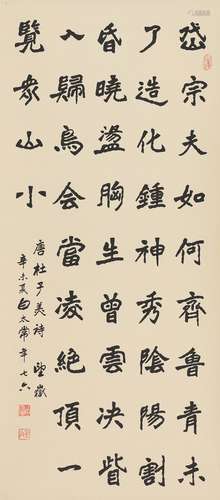 岱宗夫如何齊魯青未
了造化鍾神秀陰陽割
昏曉盪胸生曾雲决眥
入歸鳥会當凌絕頂一
覽衆山小
唐杜子美詩 望嶽
辛未夏白太常年七六